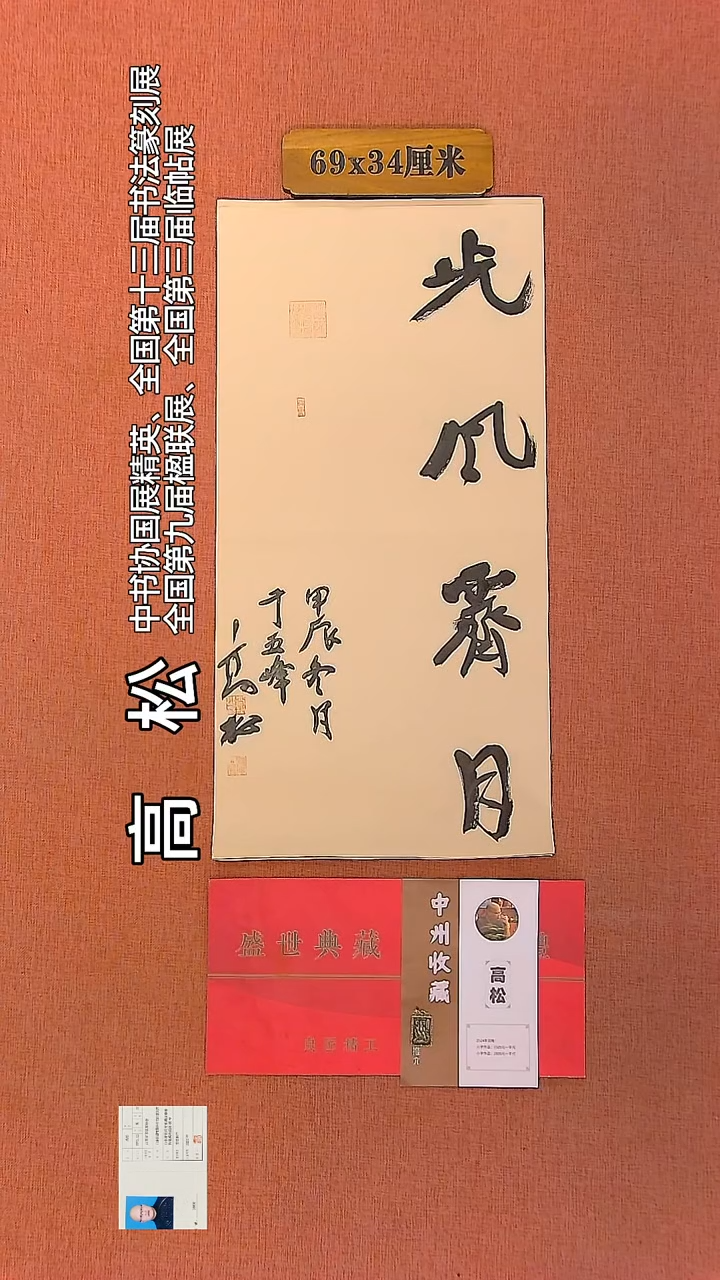 69x34厘米
高松
中书协国展精英、全国第十三届书法篆刻展
全国第九届楹联展、全国第三届临帖展
光风霁月
甲辰冬月
于五峰
高松
盛世典藏
中州收藏
高松